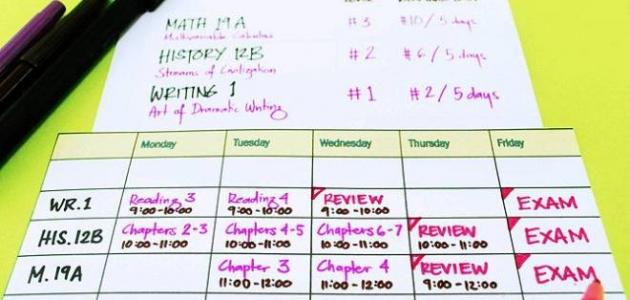 MATH 19A # 3 #10 / 5 days
Multivariable Calculus
HISTORY 12B # 2 # 6 / 5 days
Streams of Civilization
WRITING 1 # 1 # 2 / 5 days
Art of Dramatic Writing
Monday Tuesday Wednesday Thursday Friday
WR. 1 Reading 3 Reading 4 REVIEW EXAM
9:00 - 10:00 9:00 - 10:00 9:00 - 10:00
HIS. 12B Chapters 2-3 Chapters 4-5 Chapters 6-7 REVIEW EXAM
10:00 - 11:00 10:00 - 11:00 10:00 - 11:00 10:00 - 11:00
M. 19A Chapter 3 Chapter 4 REVIEW EXAM
11:00 - 12:00 11:00 - 12:00 9:00 - 12:00